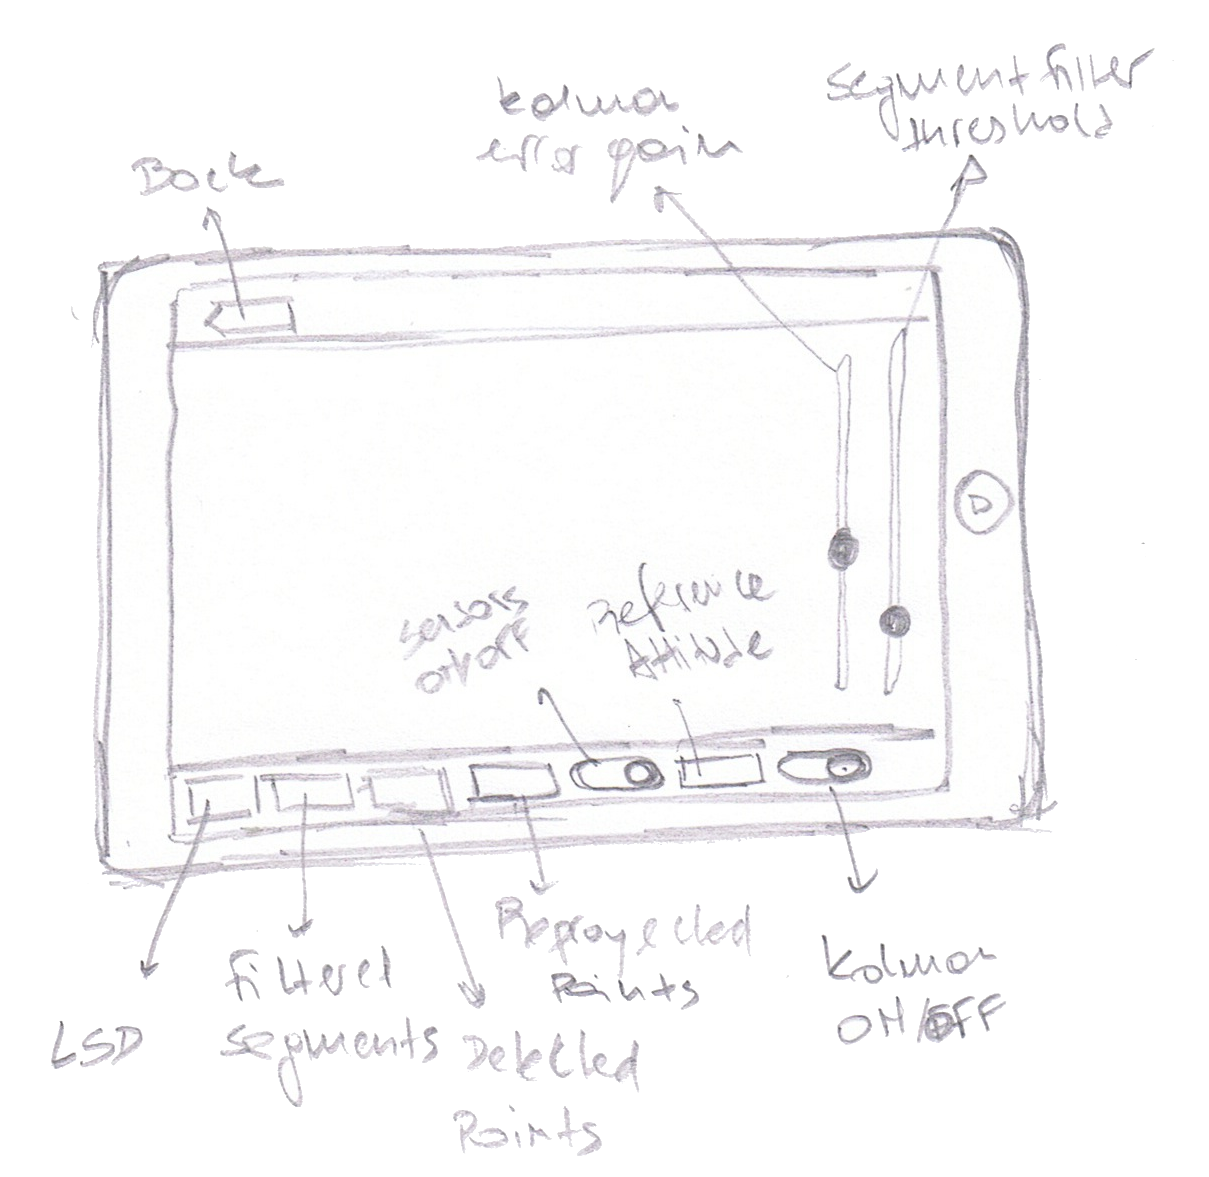 Back
kalman
error gain
segment filter
threshold
sensors
on/off
Reference
Attitude
LSD
filtered
segments
Detected
Points
Reproyected
Points
Kalman
ON/OFF